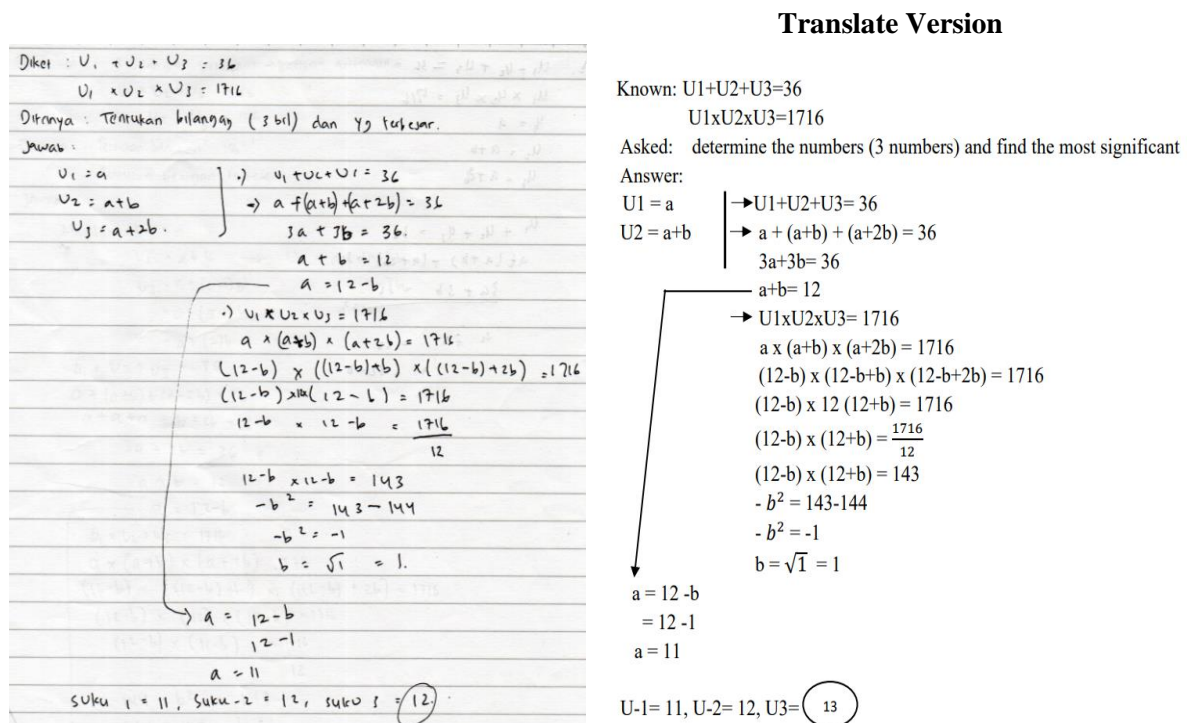 Translate Version
Diket : U1 + U2 + U3 = 36
U1 x U2 x U3 = 1716
Ditanya : Tentukan bilangan (3 bil) dan yg terbesar.
Jawab :
U1 = a
U2 = a+b
U3 = a+2b.
•) U1 + U2 + U1 = 36
→ a + (a+b) + (a+2b) = 36
3a + 3b = 36.
a + b = 12
a = 12-b
•) U1 x U2 x U3 = 1716
a x (a+b) x (a+2b) = 1716
(12-b) x ((12-b)+b) x ((12-b)+2b) = 1716
(12-b) x 12 (12-b) = 1716
12-b x 12-b = 1716/12
12-b x 12-b = 143
-b² = 143-144
-b² = -1
b = √1 = 1.
→ a = 12-b
12-1
a = 11
Suku 1 = 11, Suku-2 = 12, suku 3 = 12.
Known: U1+U2+U3=36
U1xU2xU3=1716
Asked: determine the numbers (3 numbers) and find the most significant
Answer:
U1 = a
U2 = a+b
→U1+U2+U3= 36
→ a + (a+b) + (a+2b) = 36
3a+3b= 36
a+b= 12
→ U1xU2xU3= 1716
a x (a+b) x (a+2b) = 1716
(12-b) x (12-b+b) x (12-b+2b) = 1716
(12-b) x 12 (12+b) = 1716
(12-b) x (12+b) = 1716/12
(12-b) x (12+b) = 143
- b² = 143-144
- b² = -1
b = √1 = 1
a = 12 -b
= 12 -1
a = 11
U-1= 11, U-2= 12, U3= 13